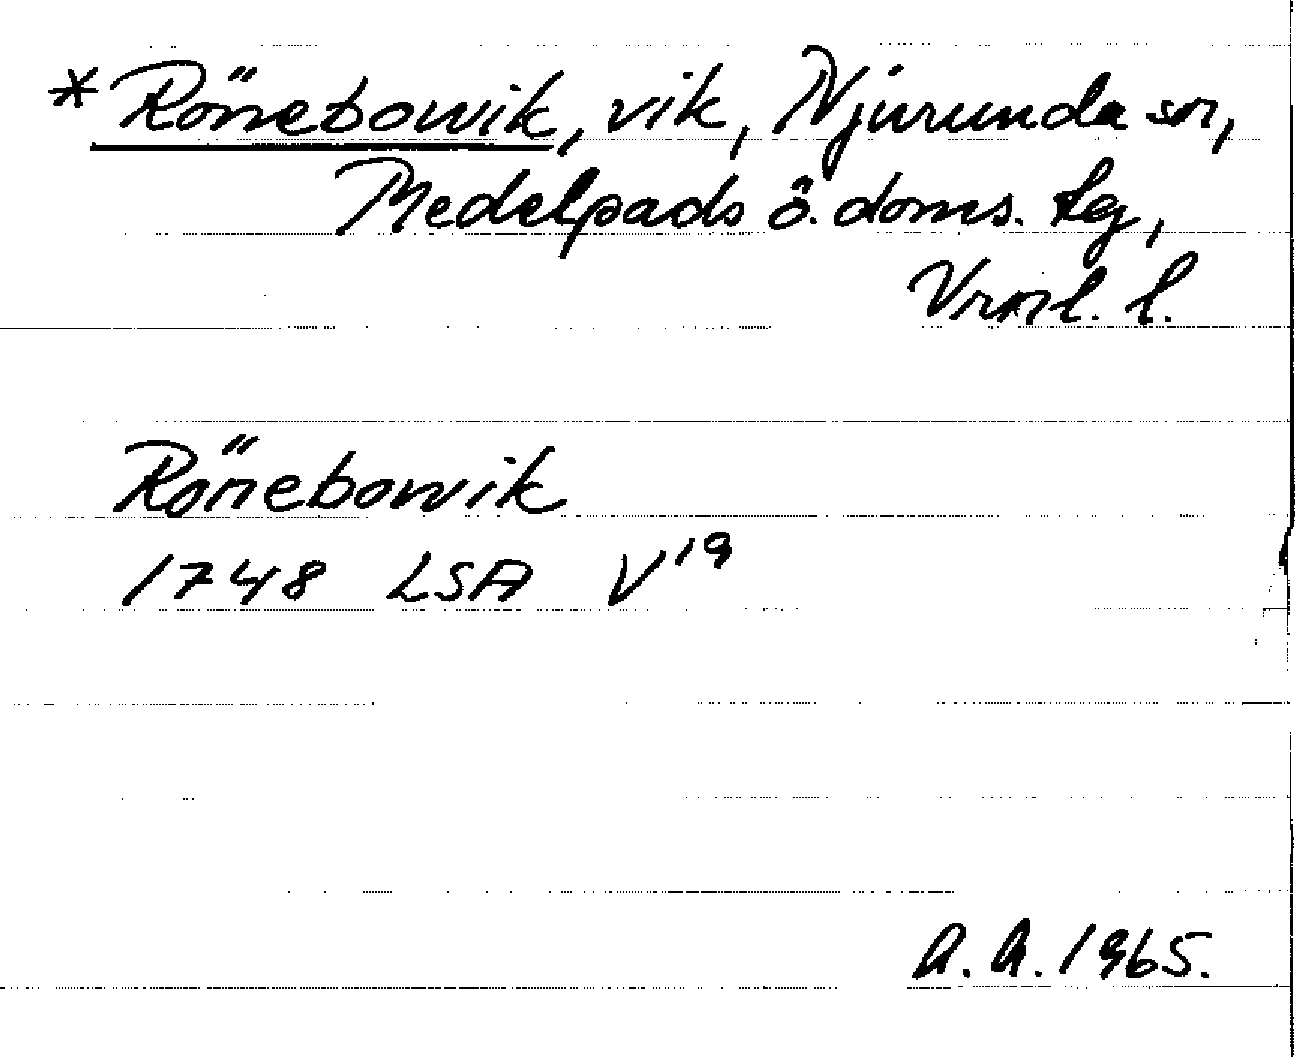 *Rönebowik, vik, Njurunda sn,
Medelpads ö. doms. tg,
Vrnl. l.
Rönebowik
1748 LSA V¹⁹
A. A. 1965.